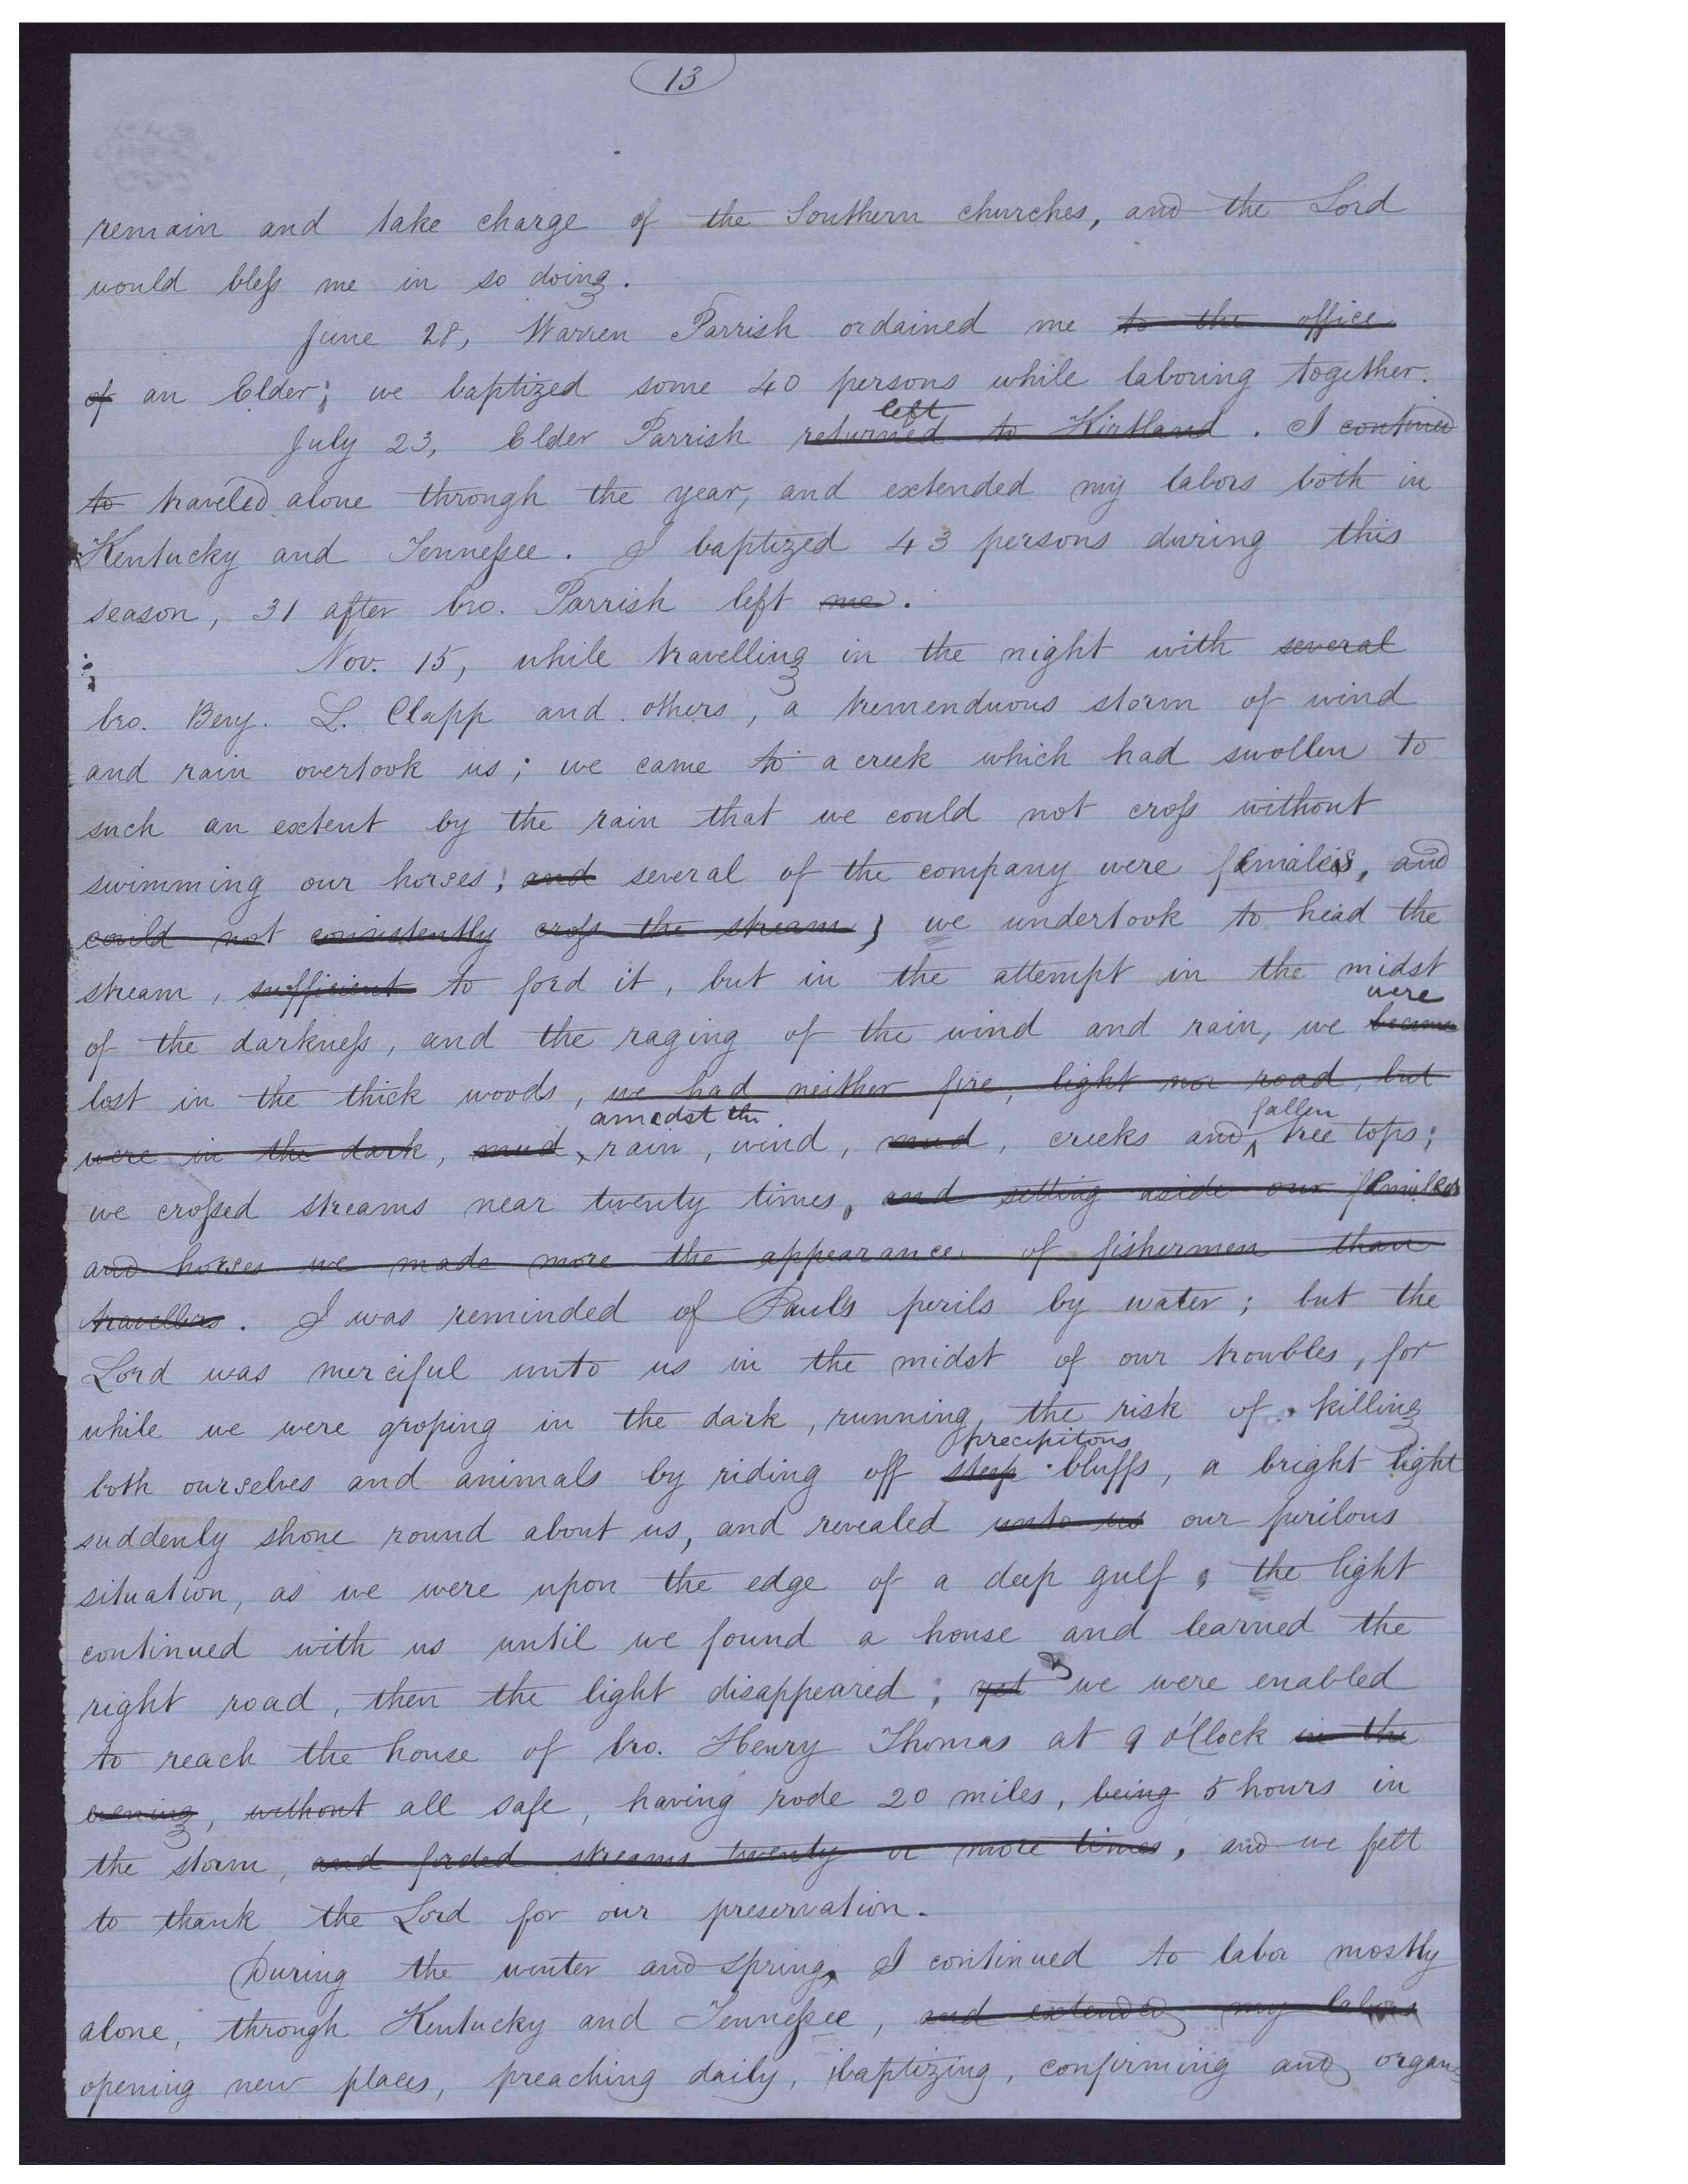 13
remain and take charge of the Southern churches, and the Lord
would bless me in so doing.
June 28, Warren Parrish ordained me to the office
of an Elder; we baptized some 40 persons while laboring together.
left
July 23, Elder Parrish returned to Kirtland. I contined
to traveled alone through the year, and extended my labors both in
Kentucky and Tennessee. I baptized 43 persons during this
season, 31 after bro. Parrish left me.
Nov. 15, while travelling in the night with several
bro. Benj. L. Clapp and others, a tremenduous storm of wind
and rain overtook us; we came to a creek which had swollen to
such an extent by the rain that we could not cross without
swimming our horses; and several of the company were females, and
could not consistently cross the stream; we undertook to head the
stream, sufficient to ford it, but in the attempt in the midst
were
of the darkness, and the raging of the wind and rain, we became
lost in the thick woods, we had neither fire, light nor road, but
amidst the fallen
were in the dark, mud, rain, wind, mud, creeks and tree tops;
we crossed streams near twenty times, and setting aside our females
and horses we made more the appearance of fishermen than
travellers. I was reminded of Paul's perils by water; but the
Lord was merciful unto us in the midst of our troubles, for
while we were groping in the dark, running the risk of killing
precipitous
both ourselves and animals by riding off steep bluffs, a bright light
suddenly shone round about us, and revealed unto us our perilous
situation, as we were upon the edge of a deep gulf, the light
continued with us until we found a house and learned the
right road, then the light disappeared; yet & we were enabled
to reach the house of bro. Henry Thomas at 9 o'Clock in the
evening, without all safe, having rode 20 miles, being 5 hours in
the storm, and forded streams twenty or more times, and we felt
to thank the Lord for our preservation.
During the winter and spring, I continued to labor mostly
alone, through Kentucky and Tennessee, and extended my labors
opening new places, preaching daily, baptizing, confirming and organ